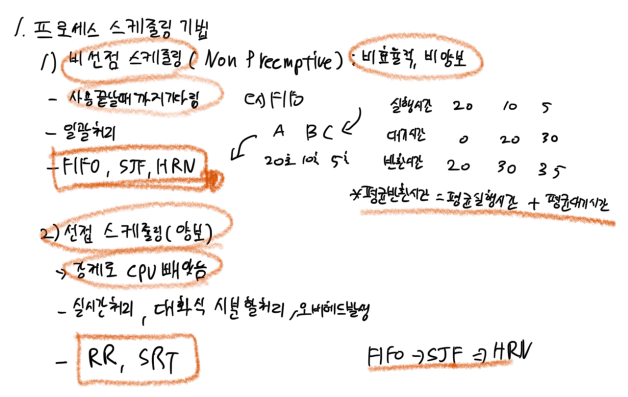 1. 프로세스 스케줄링 기법
1) 비선점 스케줄링 (Non Preemptive) : 비효율적, 비양보
- 사용끝날때까지기다림 ex) FIFO
- 일괄처리
A B C
20초 10초 5초
- FIFO, SJF, HRN
실행시간 20 10 5
대기시간 0 20 30
반환시간 20 30 35
*평균반환시간 = 평균실행시간 + 평균대기시간
2) 선점 스케줄링(양보)
→ 강제로 CPU 빼앗음
- 실시간처리, 대화식 시분할처리, 오버헤드발생
- RR, SRT
FIFO → SJF ⇒ HRN